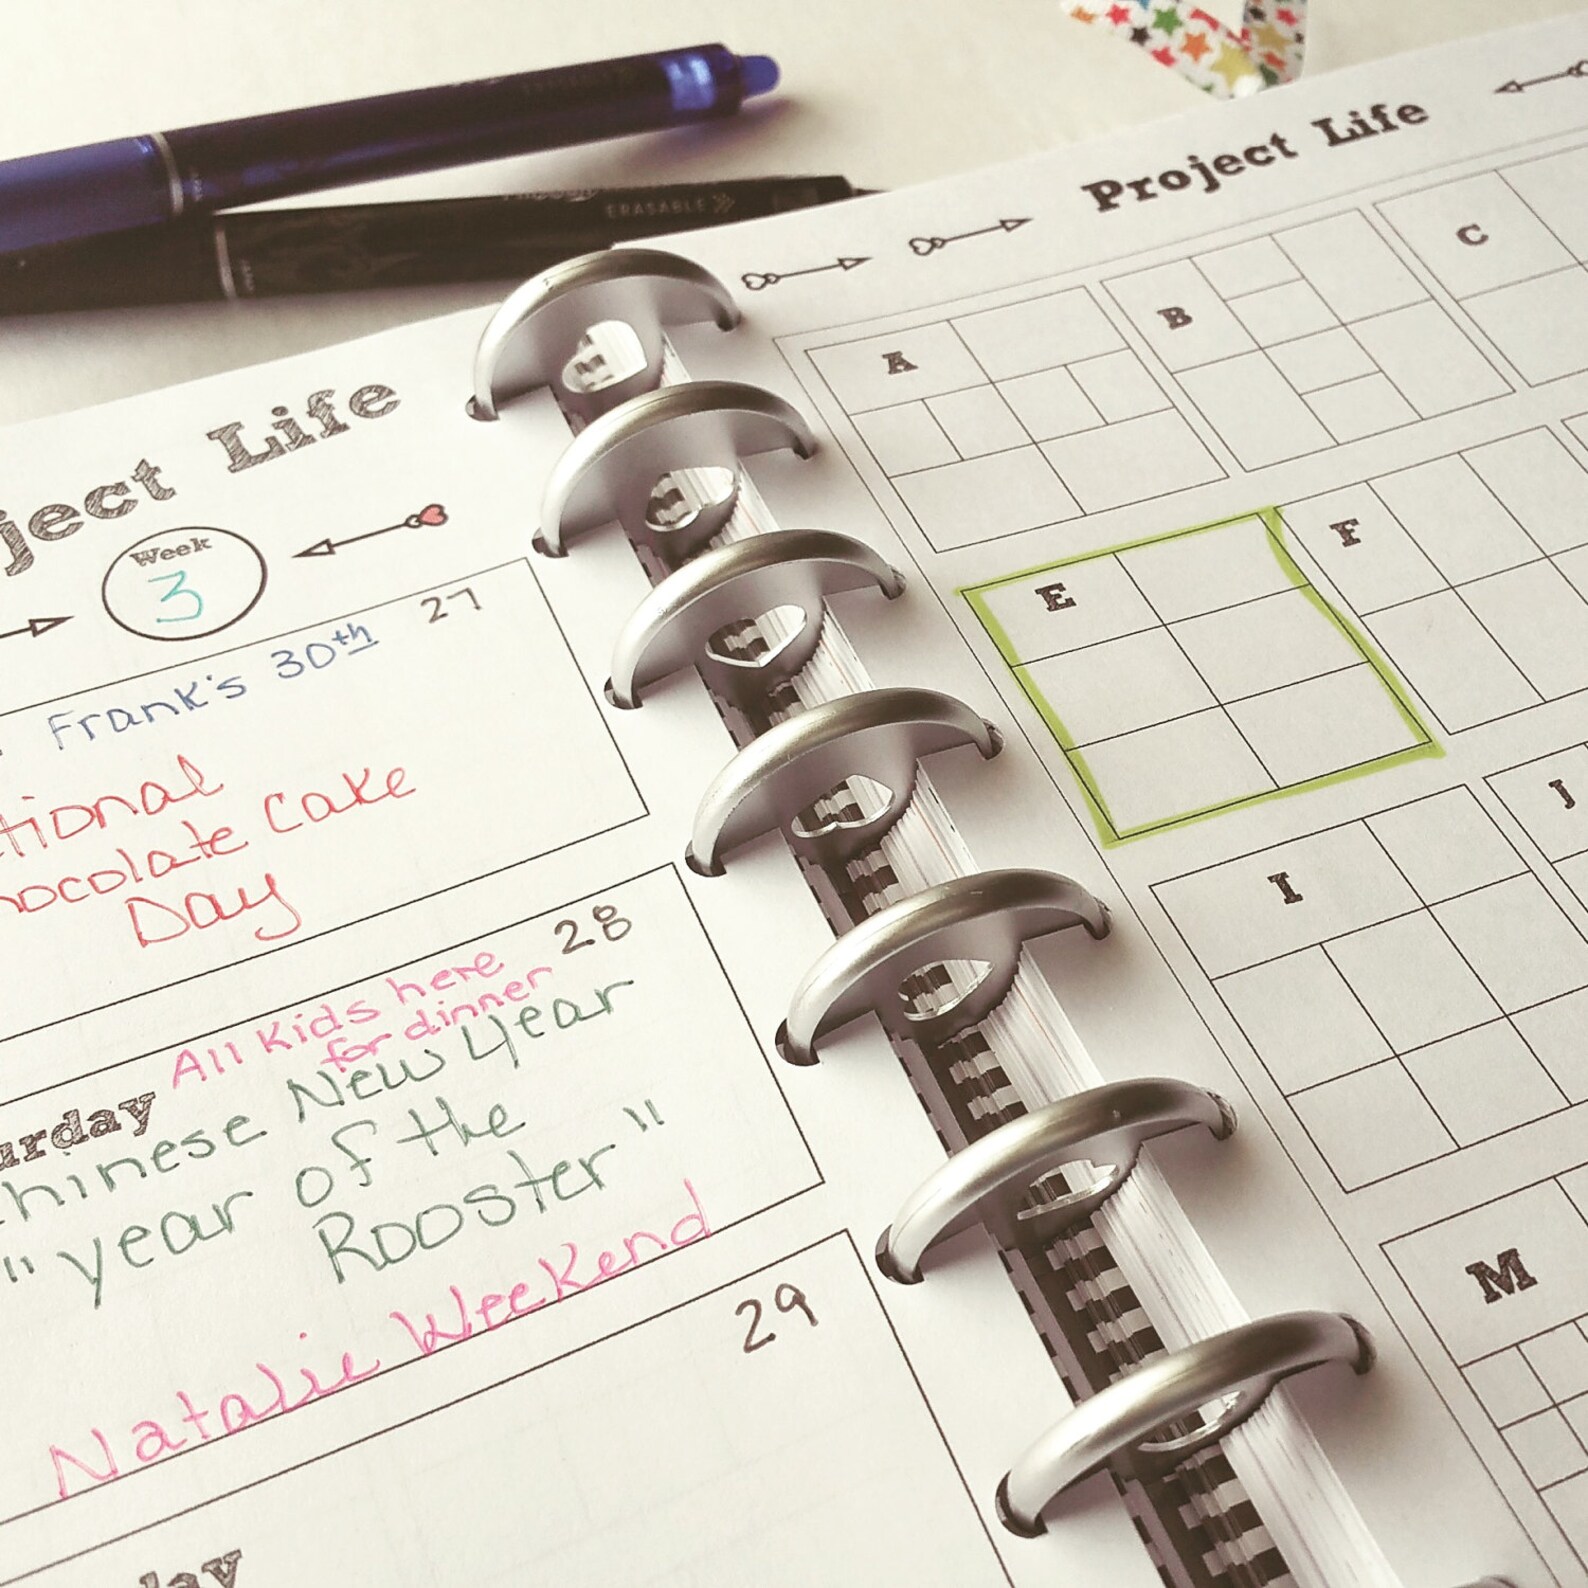 ERASABLE
ject Life
Week
3
27
Frank's 30th
tional
hocolate Cake
Day
28
All Kids here
for dinner
urday
hinese New Year
"year of the
Rooster"
Natalie Weekend
29
day
Project Life
A
B
C
E
F
I
J
M